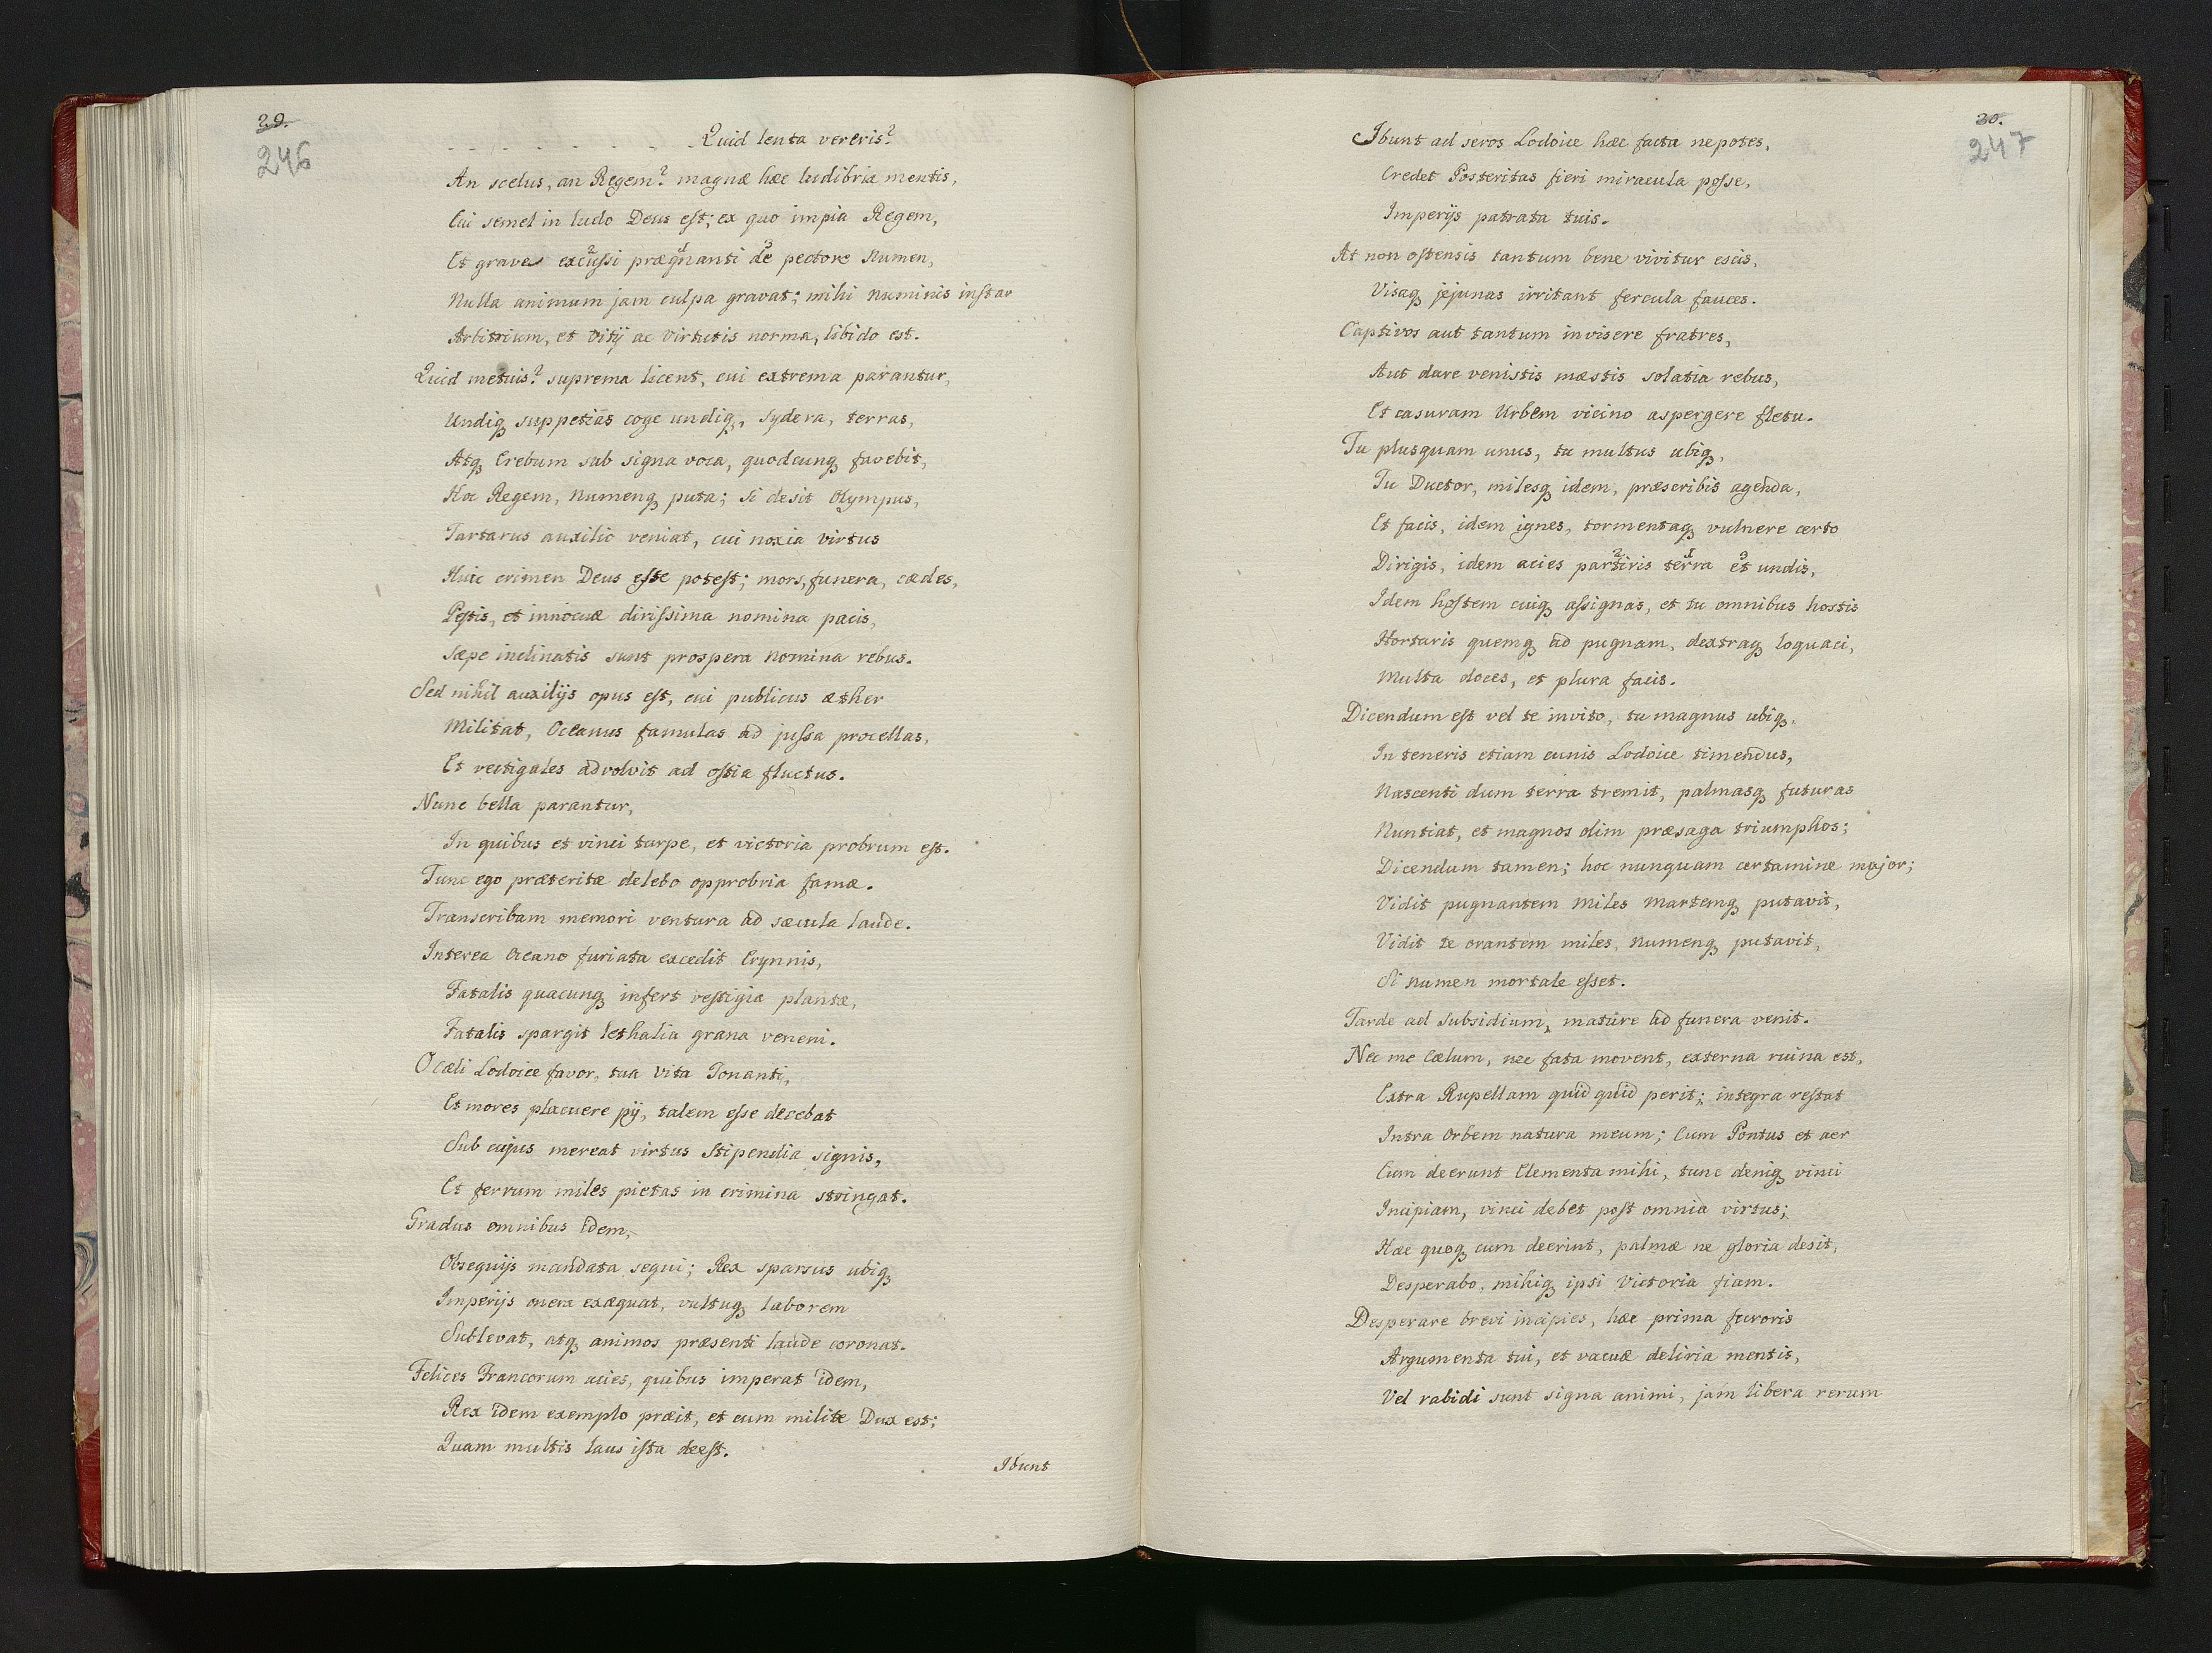 29.
246
- - - - - - - Quid lenta vereris?
An scelus, an Regem? magnæ hæc ludibria mentis,
Cui semel in ludo Deus est; ex quo impia Regem,
Et graves excussi 2 prægnanti 1 de 3 pectore Numen,
Nulla animum jam culpa gravat; mihi Numinis instar
Arbitrium, et Vitij ac Virtutis norma, libido est.
Quid metuis? suprema licent, cui extrema parantur,
Undiq; suppetias coge undiq;, sydera, terras,
Atq; Erebum sub signa voca, quodcunq; favebit,
Hoc Regem, Numenq; puta; si desit Olympus,
Tartarus auxilio veniat, cui noxia virtus
Huic crimen Deus esse potest; mors, funera, cædes,
Pestis, et innocuæ dirissima nomina pacis,
Sæpe inclinatis sunt prospera Nomina rebus.
Sed nihil auxilijs opus est, cui publicus æther
Militat, Oceanus famulas ad jussa procellas,
Et vectigales advolvit ad ostia fluctus.
Nunc bella parantur,
In quibus et vinci turpe, et victoria probrum est.
Tunc ego præteritæ delebo opprobria famæ.
Transcribam memori ventura ad sæcula laude.
Interea Oceano furiata excedit Erynnis,
Fatalis quacunq; infert vestigia plantæ,
Fatalis spargit lethalia grana veneni.
O cæli Lodoice favor, tua Vita Tonanti,
Et mores placuere pij, talem esse decebat
Sub cujus mereat virtus Stipendia signis,
Et ferrum miles pietas in crimina stringat.
Gradus omnibus idem,
Obsequijs mandata sequi; Rex sparsus ubiq;
Imperijs onera exæquat, vultuq; laborem
Sublevat, atq; animos præsenti laude coronat.
Felices Francorum acies, quibus imperat idem,
Rex idem exemplo præit, et cum milite Dux est;
Quam multis laus ista deest.
Ibunt
30.
247
Ibunt ad seros Lodoice hæc facta nepotes,
Credet Posteritas fieri miracula posse,
Imperijs patrata tuis.
At non ostensis tantum bene vivitur escis,
Visaq; jejunas irritant fercula fauces.
Captivos aut tantum invisere fratres,
Aut dare venistis mæstis solatia rebus,
Et casuram Urbem vicino aspergere fletu.
Tu plusquam unus, tu multus ubiq;,
Tu Ductor, milesq; idem, præscribis agenda,
Et facis, idem ignes, tormentaq; vulnere certo
Dirigis, idem acies partiris 2 terra 1 et 3 undis,
Idem hostem cuiq; assignas, et tu omnibus hostis
Hortaris quemq; ad pugnam, dextraq; loquaci,
Multa doces, et plura facis.
Dicendum est vel te invito, tu magnus ubiq;,
In teneris etiam cunis Lodoice timendus,
Nascenti dum terra tremit, palmasq; futuras
Nuntiat, et magnos olim præsaga triumphos;
Dicendum tamen; hoc nunquam certamine major;
Vidit pugnantem Miles Martemq; putavit,
Vidit te orantem miles, Numenq; putavit,
Si Numen mortale esset.
Tarde ad Subsidium, mature ad funera venit.
Nec me Cælum, nec fata movent, externa ruina est,
Extra Rupellam quidquid perit; integra restat
Intra Orbem natura meum; Cum Pontus et aer
Cum deerunt Elementa mihi, tunc deniq; vinci
Incipiam, vinci debet post omnia virtus;
Hæc quoq; cum deerint, palmæ ne gloria desit,
Desperabo, mihiq; ipsi Victoria fiam.
Desperare brevi incipies, hæc prima furoris
Argumenta tui, et vacuæ deliria mentis,
Vel rabidi sunt signa animi, jam libera rerum